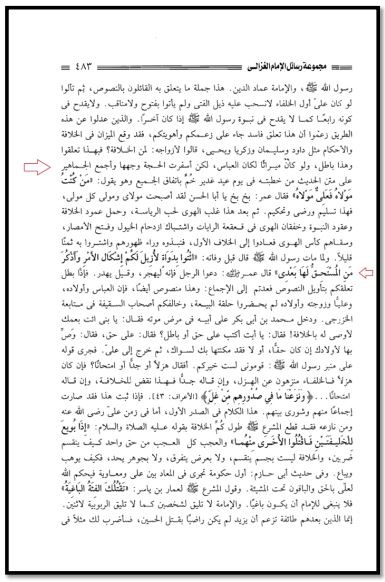 مجموعة رسائل الإمام الغزالى ٤٨٣
رسول الله ﷺ، والإمامة عماد الدين. هذا جملة ما يتعلق به القائلون بالنصوص، ثم تأولوا
لو كان على أول الخلفاء لانسحب عليه ذيل الفتى ولم يأتوا بفتوح ولامناقب. ولايقدح فى
كونه رابعًا كما لا يقدح فى نبوة رسول الله ﷺ إذا كان آخرًا. والذين عدلوا عن هذه
الطريق زعموا أن هذا تعلق فاسد جاء على زعمكم وأهويتكم، فقد وقع الميزان فى الخلافة
والأحكام مثل داود وسليمان وزكريا ويحيى، قالوا لأزواجه: لمن الخلافة؟ فبهذا تعلقوا
وهذا باطل، ولو كان ميراثًا لكان العباس، لكن أسفرت الحجة وجهها وأجمع الجماهير
على متن الحديث من خطبته فى يوم عيد غدير خم باتفاق الجميع وهو يقول: «مَنْ كُنْتُ
مَوْلَاهُ فَعَلِىٌّ مَوْلَاهُ» فقال عمر: بخ بخ يا أبا الحسن لقد أصبحت مولاى ومولى كل مولى،
فهذا تسليم ورضى وتحكيم. ثم بعد هذا غلب الهوى لحب الرياسة، وحمل عمود الخلافة
وعقود النبوة وخفقان الهوى فى قعقعة الرايات واشتباك ازدحام الخيول وفتح الأمصار،
وسقاهم كأس الهوى فعادوا إلى الخلاف الأول، فنبذوه وراء ظهورهم واشتروا به ثمنًا
قليلاً. ولما مات رسول الله ﷺ قال قبل وفاته: «ائْتُوا بِدَوَاةٍ لأُزِيلَ لَكُمْ إِشْكَالَ الأَمْرِ وَأَذْكُرَ
مَنِ الْمُسْتَحِقُّ لَهَا بَعْدِى» قال عمر: دعوا الرجل فإنه ليهجر، وقيل يهدر. فإذا بطل
تعلقكم بتأويل النصوص فعدتم إلى الإجماع: وهذا منصوص أيضًا، فإن العباس وأولاده،
وعليًّا وزوجته وأولاده لم يحضروا حلقة البيعة، وخالفكم أصحاب السقيفة فى مبايعة
الخزرجى. ودخل محمد بن أبى بكر على أبيه فى مرض موته فقال: يا بنى ائت بعمك
لأوصى له بالخلافة! فقال: يا أبت أكنت على حق أو باطل؟ فقال: على حق، فقال: وَصِّ
بها لأولادك إن كان حقًّا، أو لا فقد مكنتها بك لسواك، ثم خرج إلى على. فجرى قوله
على منبر رسول الله ﷺ: قومونى لست خيركم. أفقال هزلاً أو جدًّا أو امتحانًا؟ فإن كان
هزلاً فالخلفاء منزهون عن الهزل، وإن قاله جدًّا فهذا نقض للخلافة، وإن قاله
امتحانًا... ﴿وَنَزَعْنَا مَا فِى صُدُورِهِم مِّنْ غِلٍّ﴾ [الأعراف: ٤٣]. فإذا ثبت هذا فقد صارت
إجماعًا منهم وشورى بينهم. هذا الكلام فى الصدر الأول، أما فى زمن على رضى الله عنه
ومن نازعه فقد قطع المشرع ﷺ طول كُمِّ الخلافة بقوله عليه الصلاة والسلام: «إذَا بُويِعَ
للخَلِيفَتَيْنِ فَاقْتُلُوا الأُخْرَى مِنْهُمَا» والعجب كل العجب من حق واحد كيف ينقسم
ضربين، والخلافة ليست بجسم ينقسم، ولا بعرض يتفرق، ولا بجوهر يحد، فكيف يوهب
ويباع. وفى حديث أبى حازم: أول حكومة تجرى فى المعاد بين على ومعاوية فيحكم الله
لعلى بالحق والباقون تحت المشيئة. وقول المشرع ﷺ لعمار بن ياسر: «تَقْتُلُكَ الفئةُ البَاغِيَةُ»
فلا ينبغى للإمام أن يكون باغيًا. والإمامة لا تليق لشخصين كما لا تليق الربوبية لاثنين.
إنما الذين بعدهم طائفة تزعم أن يزيد لم يكن راضيًا بقتل الحسين، فسأضرب لك مثلاً فى